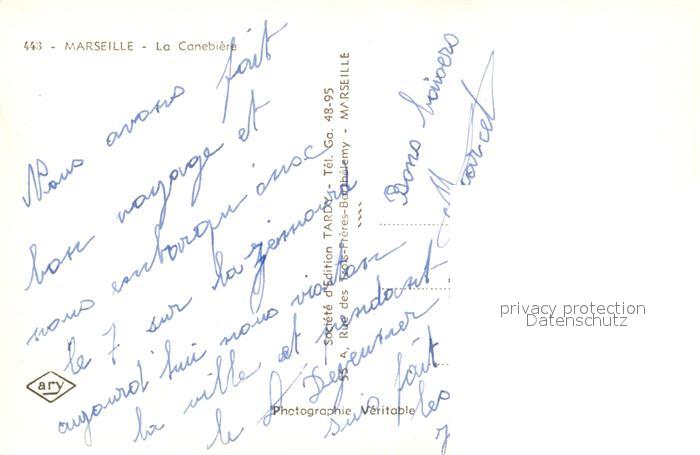 443 - MARSEILLE - La Canebière
Nous avons fait
bon voyage et
nous embarquions
le 7 sur la
aujourd'hui nous visitons
la ville et pendant
le
suis fait
les
7
Bons baisers
Marcel
Société d'Edition TARDY - Tél. Ga. 48-95
35 A, Rue des Trois-Frères-Barthélemy - MARSEILLE
ary
Photographie Véritable
privacy protection
Datenschutz